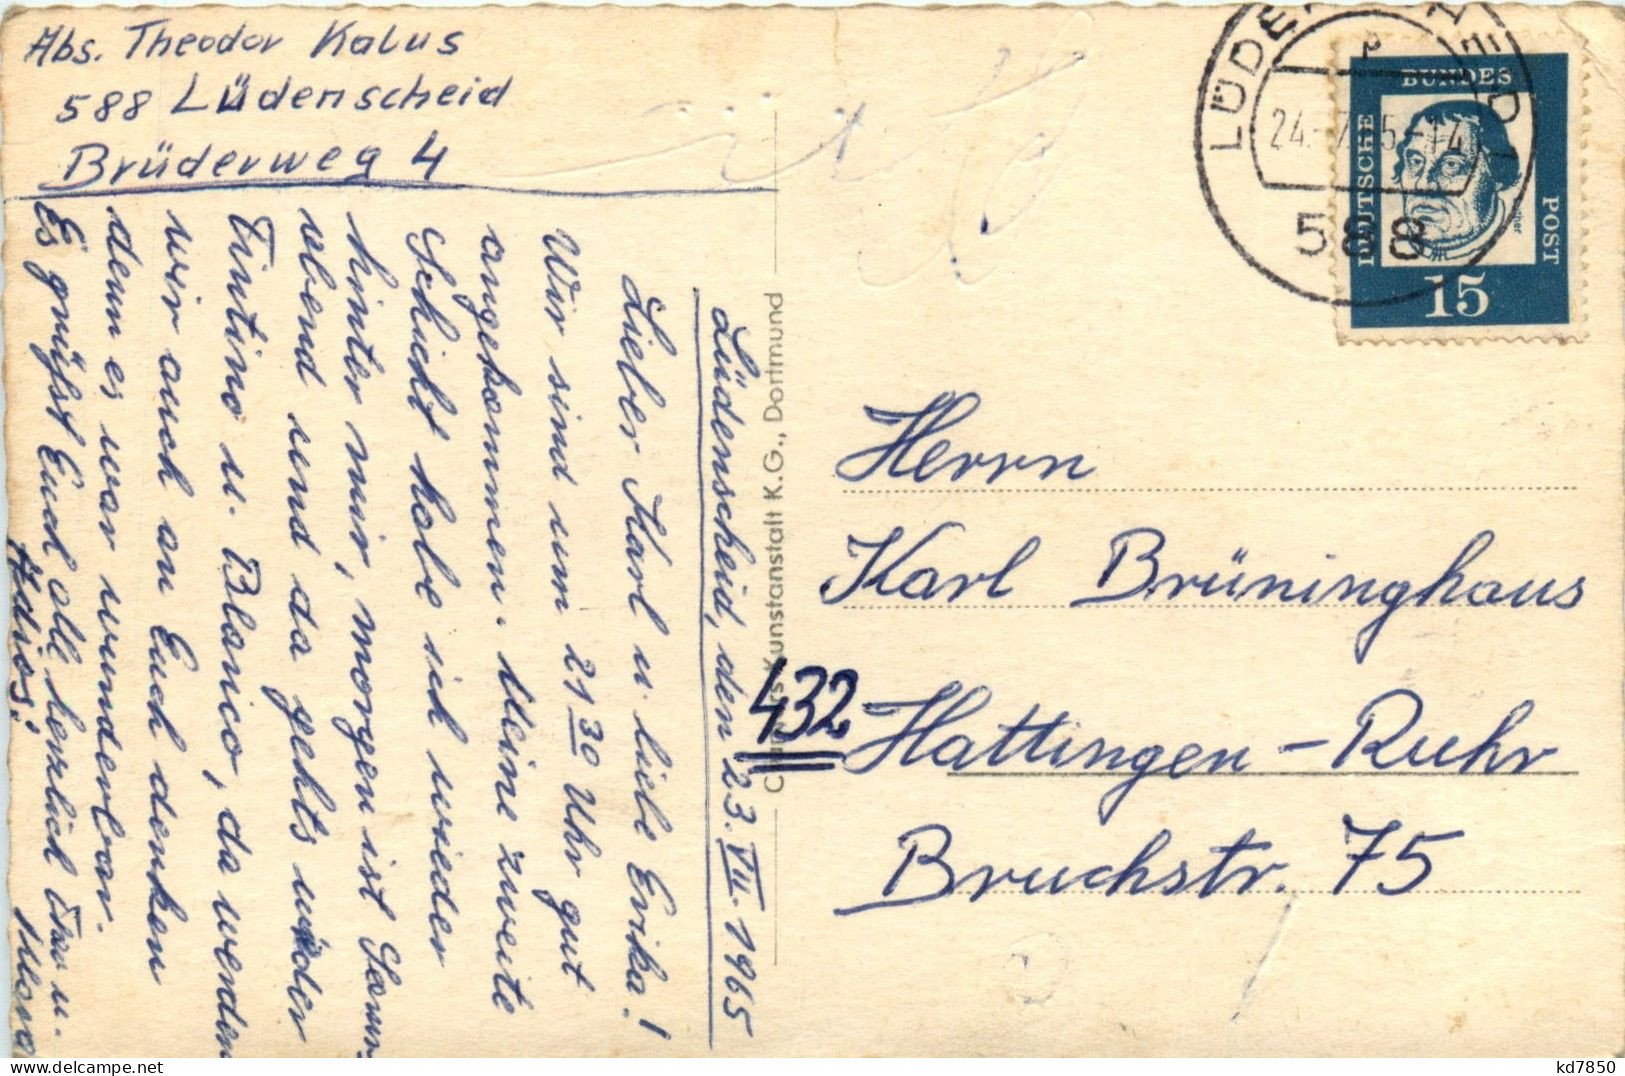 Abs. Theodor Kalus
588 Lüdenscheid
Brüderweg 4
Lüdenscheid, den 23. VII. 1965
Lieber Karl u. liebe Erika!
Wir sind um 21 30 Uhr gut
angekommen. Meine zweite
Schicht habe ich wieder
hinter mir, morgen ist Sonn-
abend und da gehts wieder
Tintino u. Blanco, da werden
wir auch an Euch denken
denn es war wunderbar.
Es grüßst Euch alle herzlich u.
Adios!
Kunstanstalt K.G., Dortmund
LÜDENSCHEID
24. 5.-14
588
DEUTSCHE
BUNDES
POST
15
Herrn
Karl Brüninghaus
432 Hattingen-Ruhr
Bruchstr. 75
kd7850